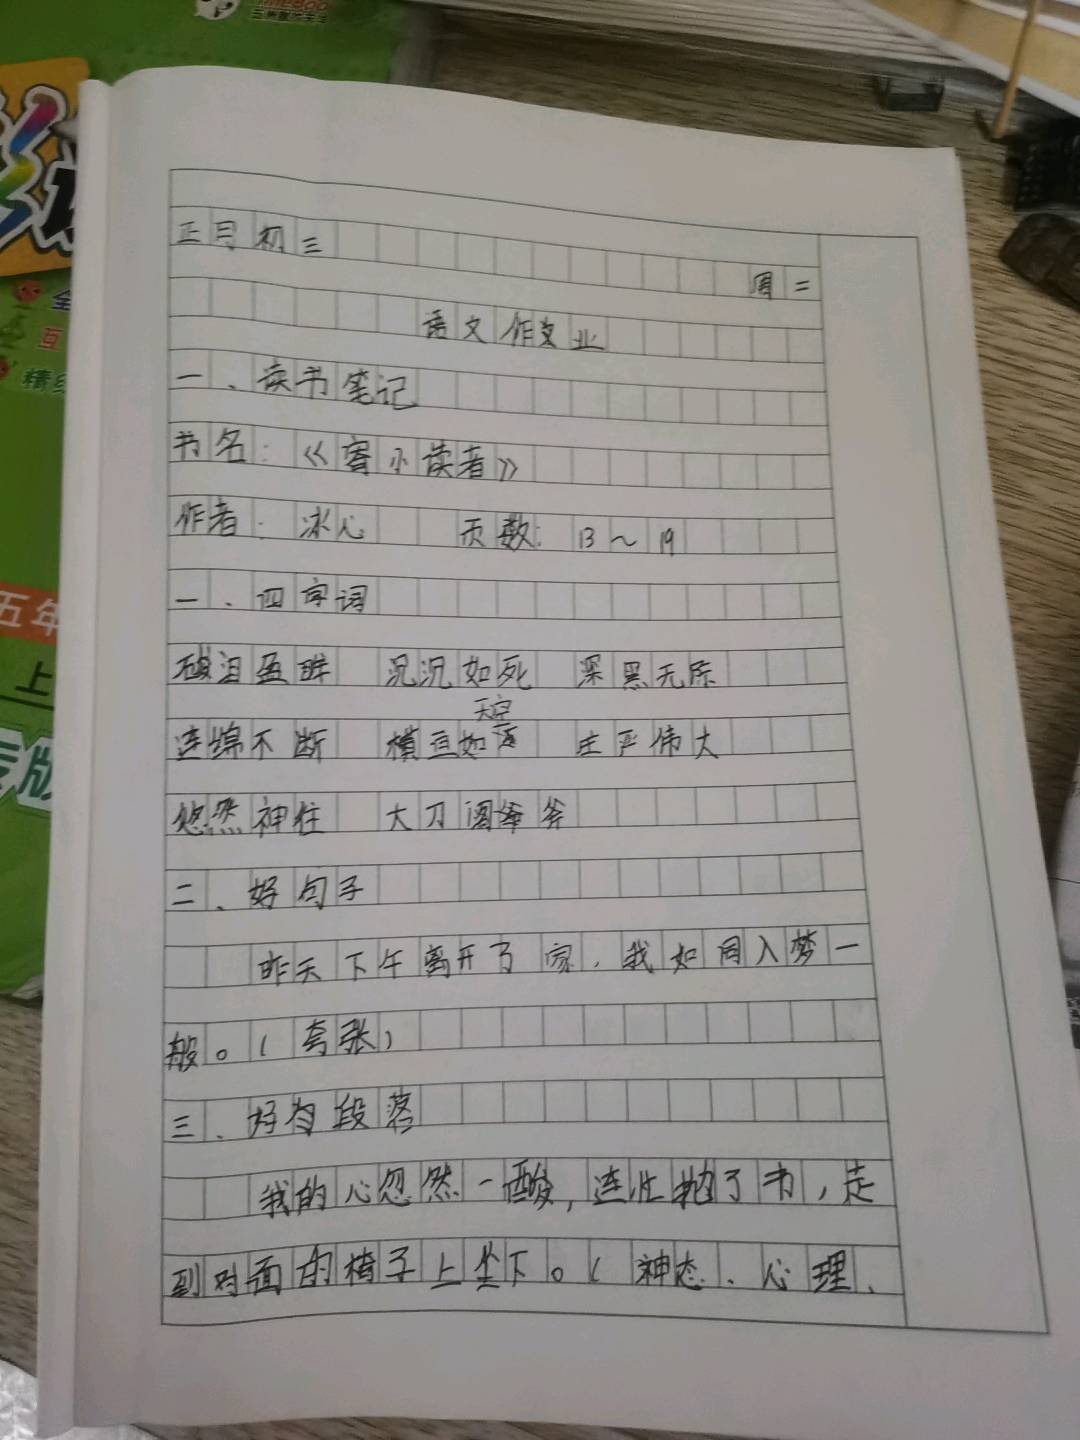 正月初三
周二
语文作业
一、读书笔记
书名：《寄小读者》
作者：冰心 页数：13～19
一、四字词
泪盈 沉沉如死 深黑无际
连绵不断 横亘如 庄严伟大
天空
悠然神往 大刀阔斧
二、好句子
昨天下午离开了家，我如同入梦一
般。（夸张）
三、好句段落
我的心忽然一酸，连忙抛了书，走
到对面的椅子上坐下。（神态、心理、
五年
上
版
全
互
精练